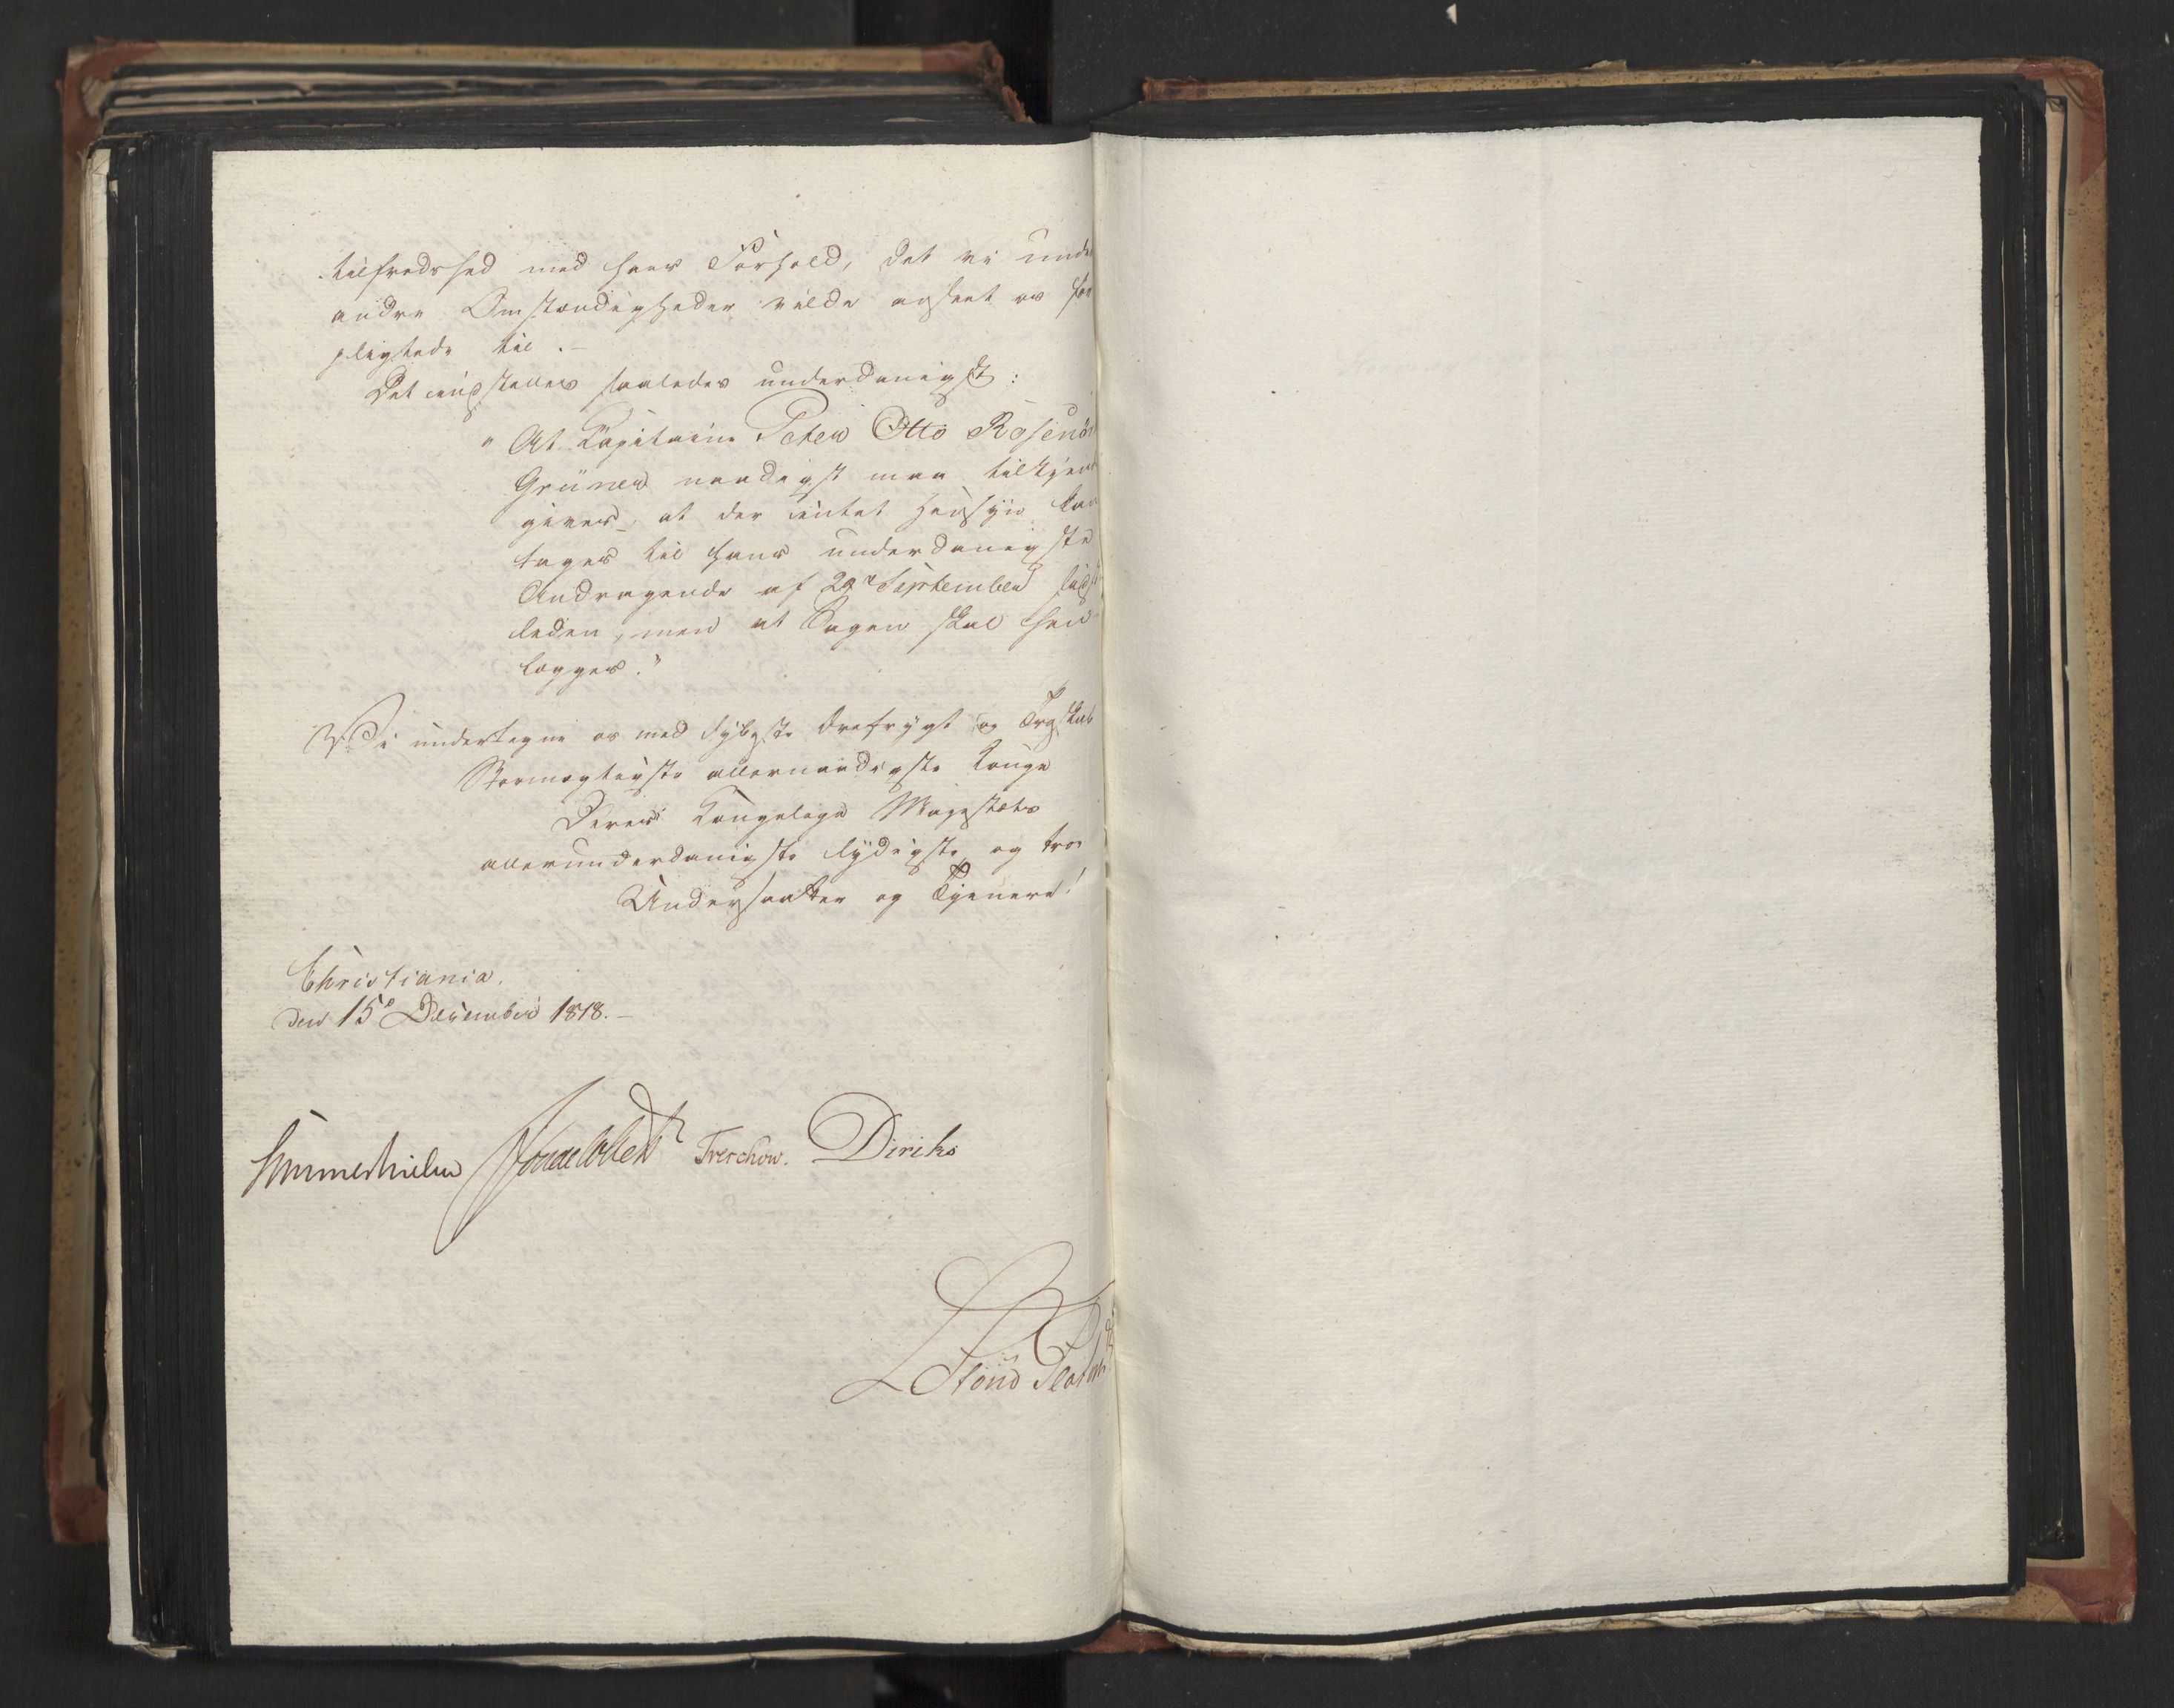 tilfredshed med hans Forhold, det vi unde
andre Omstændigheder vilde anseet os for
pligtede til.-
Det indstilles saaledes underdanigst:
"At Kapitaine Peter Otto Rosenör
Grüner naadigst maa tilkjende
gives, at der intet Hensyn kan
tages til hans underdanigste
Andragende af September sidst
leden, men at Sagen skal hen-
lægges."
Vi undertegne os med dybeste Ærefrygt og Troskab
Stormægtigste allernaadigste Konge
Deres Kongelige Majestæts
allerunderdanigste lydigste og tro
Undersaatter og Tjenere!
Christiania.
den 15de December 1818.-
Sommerhielm Treschow. Diriks